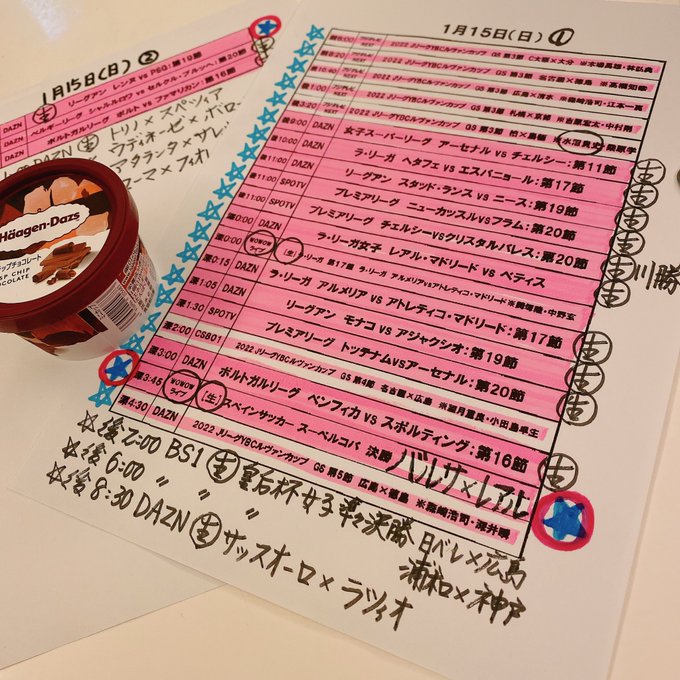 1月15日(日)②
DAZN 生 リーグアン レンヌ vs PSG:第19節
DAZN ベルギーリーグ シャルルロワ vs セルクル・ブルッヘ:第20節
DAZN ポルトガルリーグ ポルト vs ファマリカン:第16節
DAZN トリノ×スペツィア
ウディネーゼ×ボロー
アタランタ×サレ
ーマ×フィオ
Häagen-Dazs
ップチョコレート
SP CHIP
OCOLATE
1月15日(日)①
2022 JリーグYBCルヴァンカップ GS 第3節 C大阪×大分
2022 JリーグYBCルヴァンカップ GS 第3節 名古屋×徳島
2022 JリーグYBCルヴァンカップ GS 第3節 広島×清水 ※森崎浩司・江本一真
2022 JリーグYBCルヴァンカップ GS 第3節 札幌×京都
2022 JリーグYBCルヴァンカップ GS 第3節 柏×鳥栖 ※水沼貴史
後9:00 DAZN 女子スーパーリーグ アーセナル vs チェルシー:第11節 生
後10:00 DAZN ラ・リーガ ヘタフェ vs エスパニョール:第17節 生
後11:00 DAZN リーグアン スタッド・ランス vs ニース:第19節 生
後11:00 SPOTV プレミアリーグ ニューカッスルvsフラム:第20節 生
後11:00 SPOTV プレミアリーグ チェルシーvsクリスタルパレス:第20節 生 川勝
深0:00 DAZN ラ・リーガ女子 レアル・マドリード vs ベティス 生
深0:00 WOWOWライブ (生) ラ・リーガ 第17節 ラ・リーガ アルメリア vs アトレティコ・マドリード
深0:15 DAZN ラ・リーガ アルメリア vs アトレティコ・マドリード:第17節 生
深1:05 DAZN リーグアン モナコ vs アジャクシオ:第19節 生
深1:30 SPOTV プレミアリーグ トッテナムvsアーセナル:第20節 生
深2:00 CSBO1 2022 JリーグYBCルヴァンカップ GS 第4節 名古屋×広島 ※望月重良・小田島卓生
深3:00 DAZN ポルトガルリーグ ベンフィカ vs スポルティング:第16節 生
深3:45 WOWOWライブ (生) スペインサッカー スーペルコパ 決勝 バルサ×レアル
深4:30 DAZN 2022 JリーグYBCルヴァンカップ GS 第5節 広島×徳島 ※森崎浩司・深井瞬
☆後2:00 BS1 生 皇后杯女子準々決勝 日ベレ×広島
☆後6:00 〃 〃 〃 浦和×神戸
☆後8:30 DAZN 生 サッスオーロ×ラツィオ